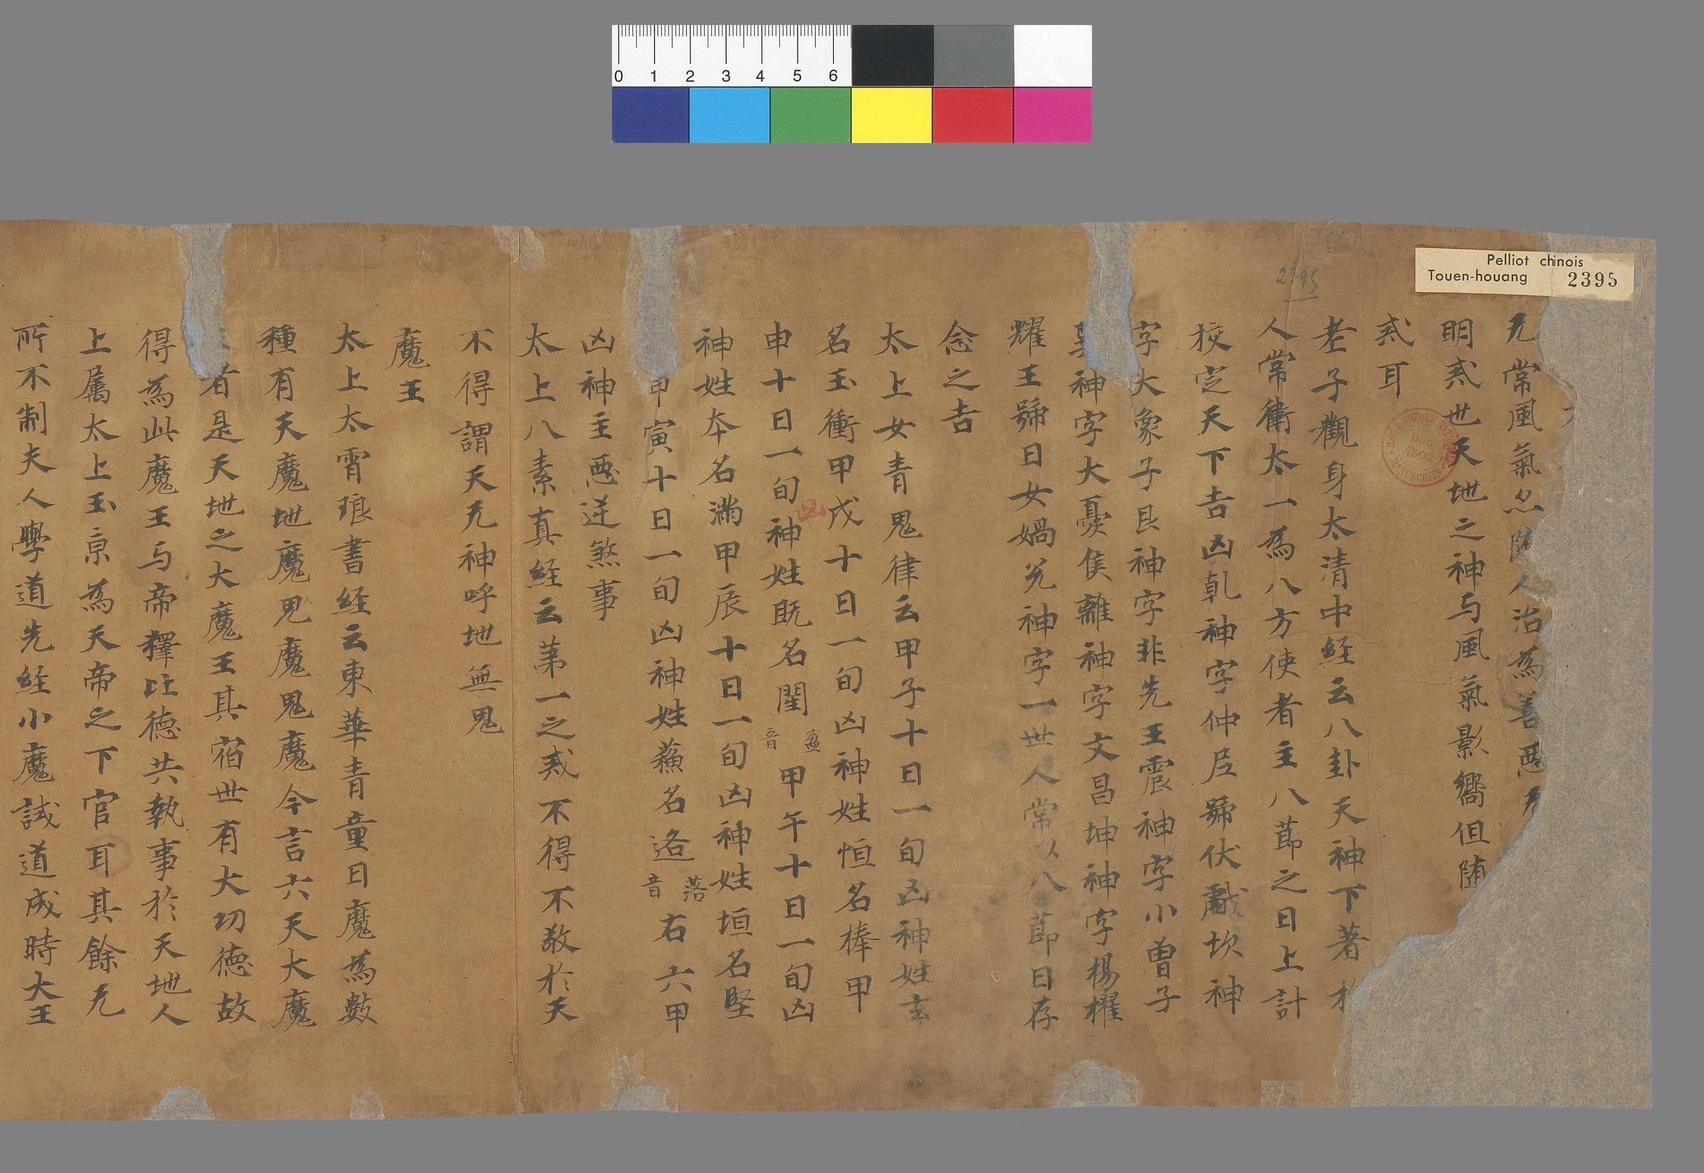 Pelliot chinois
Touen-houang 2395
2395
0 1 2 3 4 5 6
无常風氣 人治為善惡
明忒世天地之神与風氣影嚮但随
忒耳
老子觀身太清中経云八卦天神下著
人常衛太一為八方使者主八莭之日上計
挍定天下吉凶乹神字仲尼號伏戲坎神
字大象子艮神字非先王震神字小曽子
神字大憂侯離神字文昌坤神字楊櫂
耀王號曰女媧兊神字一世人常以八莭日存
念之吉
太上女青鬼律云甲子十日一旬凶神姓
名玉衝甲戌十日一旬凶神姓恒名棒甲
申十日一旬凶神姓既名閏音盈甲午十日一旬凶
神姓夲名滿甲辰十日一旬凶神姓垣名堅
甲寅十日一旬凶神姓 名 音落右六甲
凶神主惡逆煞事
太上八素真経云苐一之忒不得不敬於天
不得謂天无神呼地無鬼
魔王
太上太霄琅書経云東華青童曰魔為數
種有天魔地魔人魔鬼魔今言六天大魔
者是天地之大魔王其宿世有大功徳故
得為此魔王与帝釋比徳共執事於天地人
上属太上玉亰為天帝之下官耳其餘无
所不制夫人學道先経小魔試道成時大王